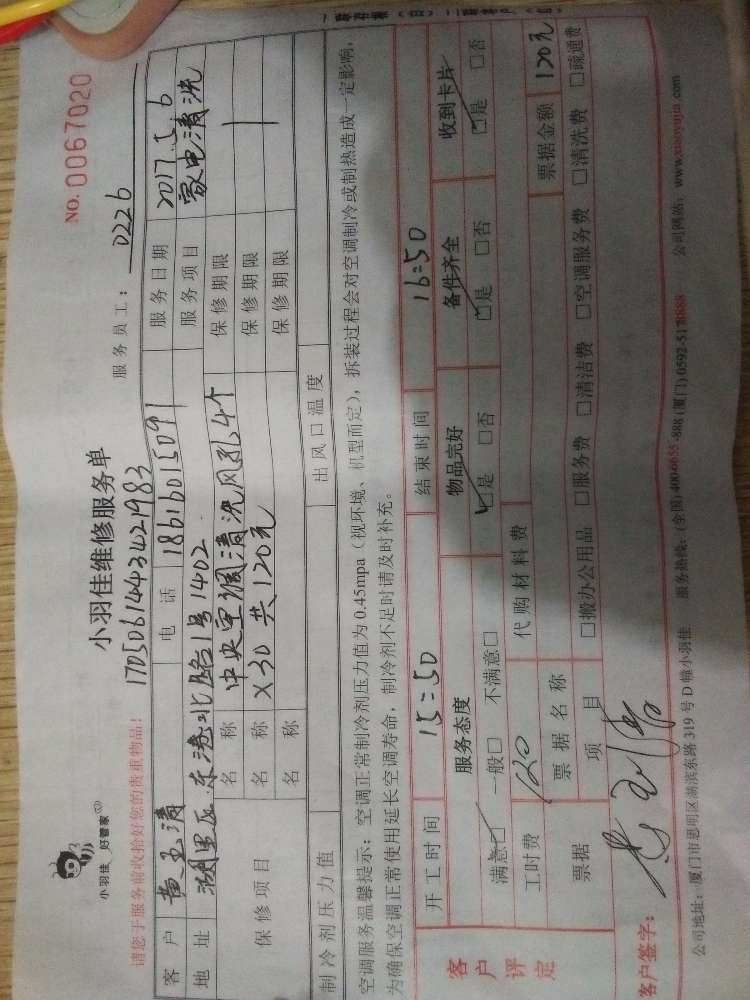 小羽佳 好管家
小羽佳维修服务单
NO. 0067020
请您于服务前收拾好您的贵重物品!
17050614434421983
服务员工: 0226
客户 黄玉清 电话 18616015091 服务日期 2017.5.6
地址 湖里区东港北路1号1402 服务项目 家电清洗
保修项目 名称 中央空调清洗风孔4个 保修期限
名称 ×30 共120元 保修期限
名称 保修期限
制冷剂压力值 出风口温度
空调服务温馨提示: 空调正常制冷剂压力值为0.45mpa(视环境、机型而定), 拆装过程会对空调制冷或制热造成一定影响,
为确保空调正常使用延长空调寿命, 制冷剂不足时请及时补充。
客户评定
开工时间 15:50 结束时间 16:50
服务态度 物品完好 备件齐全 收到卡片
满意□ 一般□ 不满意□ □是 □否 □是 □否 □是 □否
工时费 120 代购材料费
票据 票据名称 票据金额 120元
项目 □搬办公用品 □服务费 □清洁费 □空调服务费 □清洗费 □疏通费
客户签字:
公司地址: 厦门市思明区湖滨东路319号D幢小羽佳 服务热线: (全国)400-6655-888 (厦门)0592-5178888 公司网站: www.xiaoyujia.com